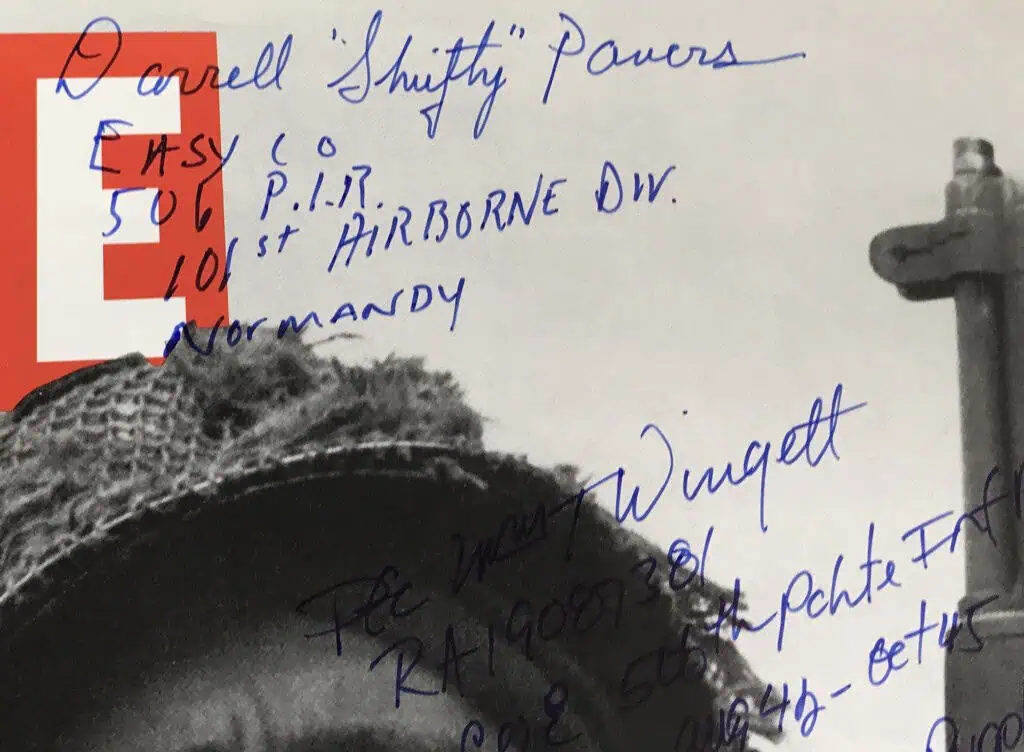 E
Darrell "Shifty" Powers
EASY CO
506 P.I.R.
101st AIRBORNE DIV.
NORMANDY
Pfc Wingett
RA 19087381
Co E 506th Pchte Inf
Aug 42 - Oct 45